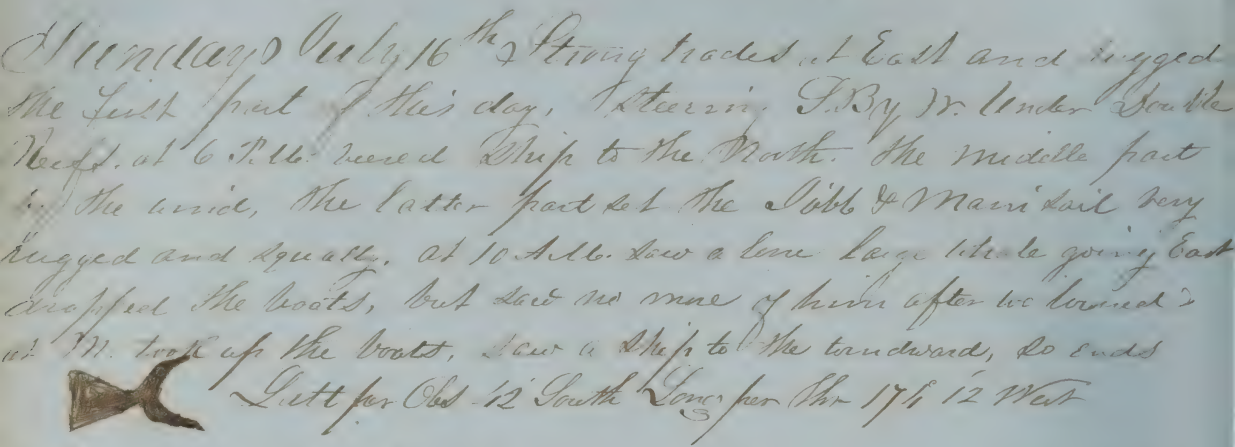 Sunday July 16th Strong trades at East and rugged
the first part of this day, Steering S. By W. Under Double
Reefs. at 6 P.M. veered Ship to the North. the middle part
by the wind, the latter part set the Jibb & Mainsail very
rugged and squally, at 10 A.M. saw a lone large whale going East
dropped the boats, but saw no more of him after we lowered
at M. took up the boats, saw a Ship to the windward, so ends
Latt per Obs 12 South Long per Chr 12 West